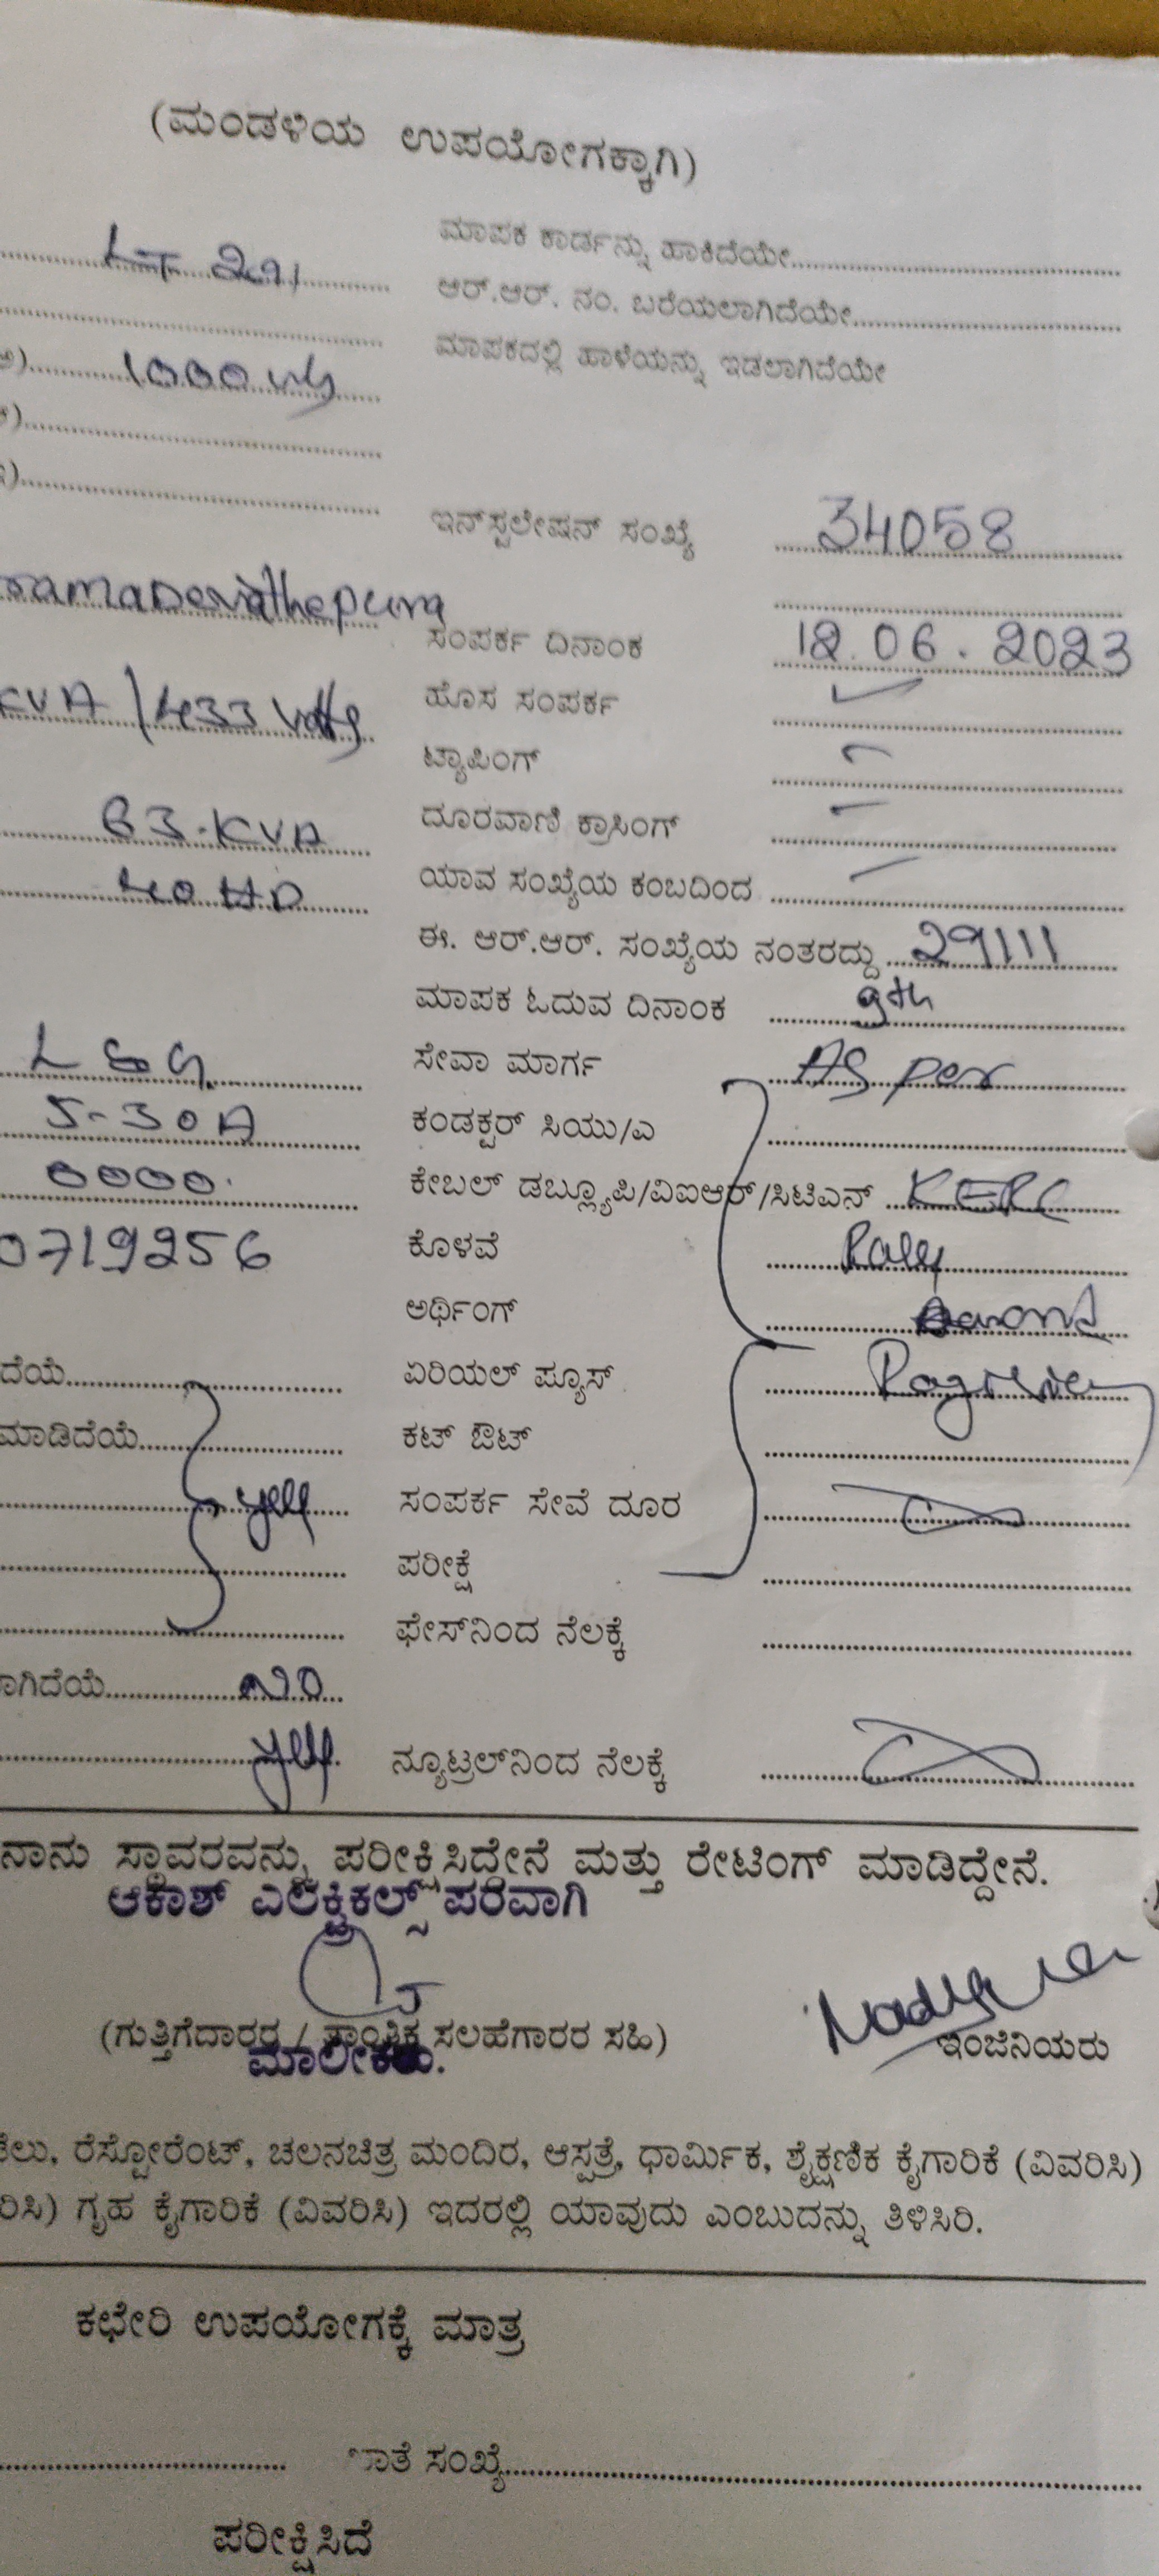 (ಮಂಡಳಿಯ ಉಪಯೋಗಕ್ಕಾಗಿ)
ಮಾಪಕ ಕಾರ್ಡನ್ನು ಹಾಕಿದೆಯೇ
LT
ಆರ್.ಆರ್. ನಂ. ಬರೆಯಲಾಗಿದೆಯೇ
ಮಾಪಕದಲ್ಲಿ ಹಾಳೆಯನ್ನು ಇಡಲಾಗಿದೆಯೇ
1000
ಇನ್‌ಸ್ಟಲೇಷನ್ ಸಂಖ್ಯೆ 34058
ಸಂಪರ್ಕ ದಿನಾಂಕ 12.06.2023
KVA/433 Volts ಹೊಸ ಸಂಪರ್ಕ ✓
ಟ್ಯಾಪಿಂಗ್ -
63.KVA ದೂರವಾಣಿ ಕ್ರಾಸಿಂಗ್ -
40 HP ಯಾವ ಸಂಖ್ಯೆಯ ಕಂಬದಿಂದ -
ಈ. ಆರ್.ಆರ್. ಸಂಖ್ಯೆಯ ನಂತರದ್ದು 29111
ಮಾಪಕ ಓದುವ ದಿನಾಂಕ 9th
L&G. ಸೇವಾ ಮಾರ್ಗ As per
5-30A ಕಂಡಕ್ಟರ್ ಸಿಯು/ಎ
0000. ಕೇಬಲ್ ಡಬ್ಲ್ಯೂಪಿ/ವಿಐಆರ್/ಸಿಟಿಎನ್ KERC
0719256 ಕೊಳವೆ
ಅರ್ಥಿಂಗ್
ದೆಯೆ ಏರಿಯಲ್ ಫ್ಯೂಸ್
ಮಾಡಿದೆಯೆ ಕಟ್ ಔಟ್
ಸಂಪರ್ಕ ಸೇವೆ ದೂರ
ಪರೀಕ್ಷೆ
ಫೇಸ್‌ನಿಂದ ನೆಲಕ್ಕೆ
ಾಗಿದೆಯೆ NO
ನ್ಯೂಟ್ರಲ್‌ನಿಂದ ನೆಲಕ್ಕೆ
ನಾನು ಸ್ಥಾವರವನ್ನು ಪರೀಕ್ಷಿಸಿದ್ದೇನೆ ಮತ್ತು ರೇಟಿಂಗ್ ಮಾಡಿದ್ದೇನೆ.
ಆಕಾಶ್ ಎಲೆಕ್ಟ್ರಿಕಲ್ಸ್ ಪರವಾಗಿ
(ಗುತ್ತಿಗೆದಾರರ / ತಾಂತ್ರಿಕ ಸಲಹೆಗಾರರ ಸಹಿ)
ಇಂಜಿನಿಯರು
ಮಾಲೀಕರು.
ಟೆಲು, ರೆಸ್ಟೋರೆಂಟ್, ಚಲನಚಿತ್ರ ಮಂದಿರ, ಆಸ್ಪತ್ರೆ, ಧಾರ್ಮಿಕ, ಶೈಕ್ಷಣಿಕ ಕೈಗಾರಿಕೆ (ವಿವರಿಸಿ)
ರಿಸಿ) ಗೃಹ ಕೈಗಾರಿಕೆ (ವಿವರಿಸಿ) ಇದರಲ್ಲಿ ಯಾವುದು ಎಂಬುದನ್ನು ತಿಳಿಸಿರಿ.
ಕಛೇರಿ ಉಪಯೋಗಕ್ಕೆ ಮಾತ್ರ
ಾತೆ ಸಂಖ್ಯೆ
ಪರೀಕ್ಷಿಸಿದೆ